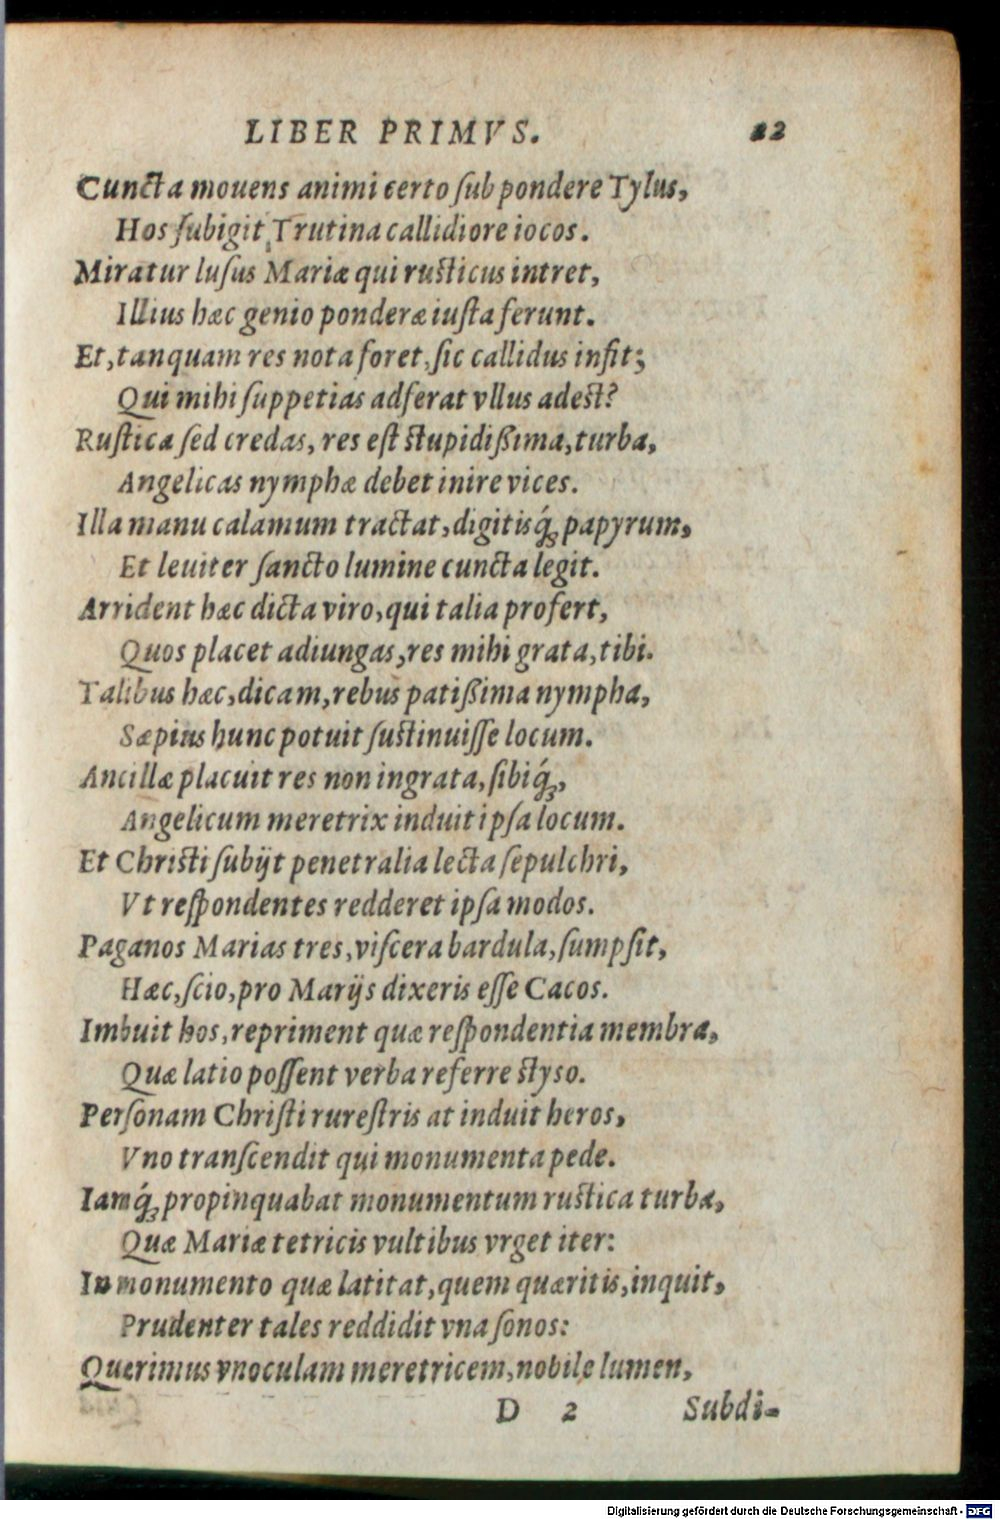 LIBER PRIMVS. 22
Cuncta mouens animi certo ſub pondere Tylus,
Hos ſubigit Trutina callidiore iocos.
Miratur luſus Mariæ qui ruſticus intret,
Illius hæc genio pondera iuſta ferunt.
Et, tanquam res nota foret, ſic callidus infit;
Qui mihi ſuppetias adferat vllus adest?
Ruſtica ſed credas, res eſt ſtupidißima, turba,
Angelicas nymphæ debet inire vices.
Illa manu calamum tractat, digitisq́ꝫ papyrum,
Et leuiter ſancto lumine cuncta legit.
Arrident hæc dicta viro, qui talia profert,
Quos placet adiungas, res mihi grata, tibi.
Talibus hæc, dicam, rebus patißima nympha,
Sæpius hunc potuit ſuſtinuiſſe locum.
Ancillæ placuit res non ingrata, ſibiq́ꝫ,
Angelicum meretrix induit ipſa locum.
Et Chriſti ſubijt penetralia lecta ſepulchri,
Vt reſpondentes redderet ipſa modos.
Paganos Marias tres, viſcera bardula, ſumpſit,
Hæc, ſcio, pro Marijs dixeris eſſe Cacos.
Imbuit hos, repriment quæ reſpondentia membra,
Quæ latio poſſent verba referre ſtyso.
Perſonam Chriſti rureſtris at induit heros,
Vno tranſcendit qui monumenta pede.
Iamq́ꝫ propinquabat monumentum ruſtica turba,
Quæ Mariæ tetricis vultibus vrget iter:
In monumento quæ latitat, quem quæritis, inquit,
Prudenter tales reddidit vna ſonos:
Querimus vnoculam meretricem, nobile lumen,
D 2 Subdi-
Digitalisierung gefördert durch die Deutsche Forschungsgemeinschaft - DFG